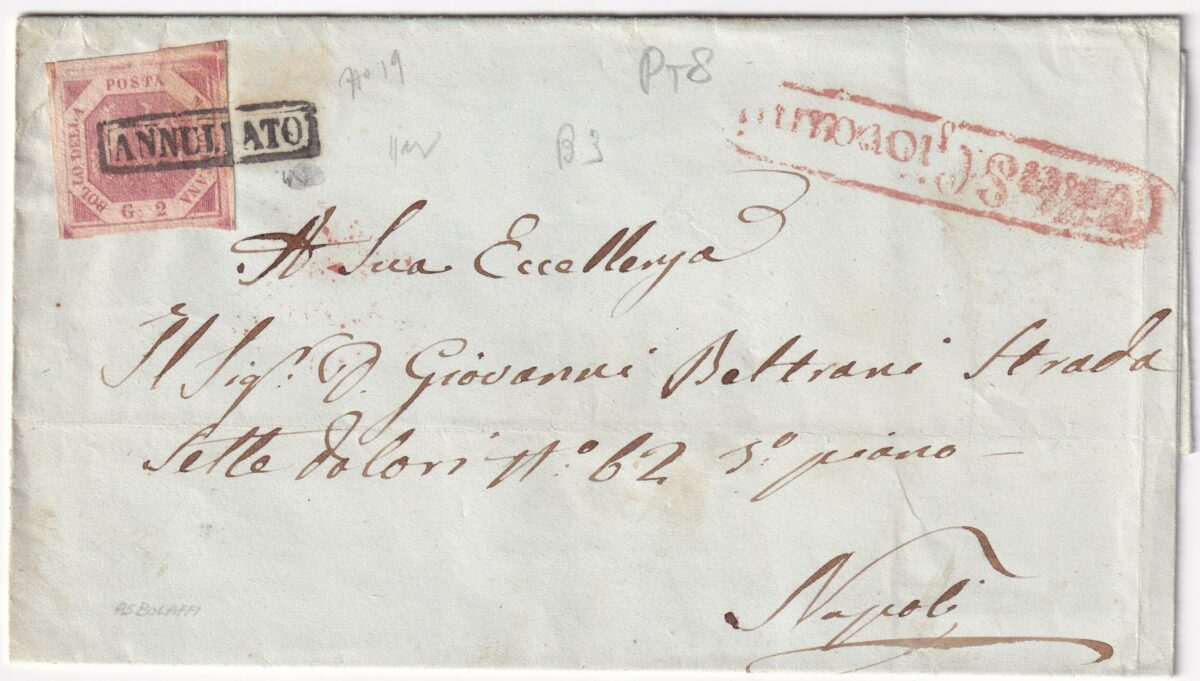 BOLLO DELLA
POSTA
G. 2
ANNULLATO
PT8
B3
A Sua Eccellenza
Il Sigr. D. Giovanni Beltrani Strada
Sette dolori No. 62 3o. piano –
Napoli
AS BOLAFFI